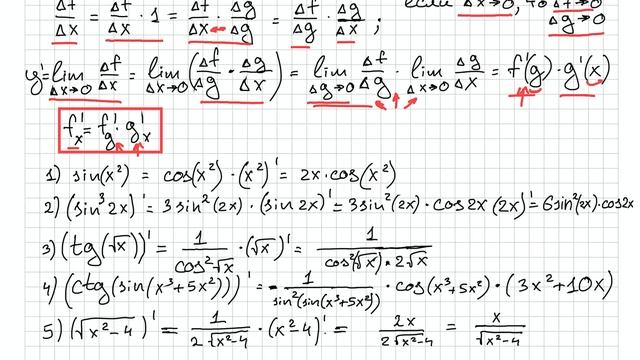 Δf/Δx = Δf/Δx · 1 = Δf/Δx · Δg/Δg = Δf/Δg · Δg/Δx ; если Δx→0, то Δg→0
y' = lim Δx→0 Δf/Δx = lim Δx→0 (Δf/Δg · Δg/Δx) = lim Δg→0 Δf/Δg · lim Δx→0 Δg/Δx = f'(g) · g'(x)
f'x = f'g · g'x
1) sin(x²) = cos(x²) · (x²)' = 2x · cos(x²)
2) (sin³ 2x)' = 3 sin²(2x) · (sin 2x)' = 3 sin²(2x) · cos 2x (2x)' = 6 sin²(2x) · cos 2x
3) (tg(√x))' = 1/cos²√x · (√x)' = 1/cos²(√x) · 2√x
4) (ctg(sin(x³+5x²)))' = - 1/sin²(sin(x³+5x²)) · cos(x³+5x²) · (3x²+10x)
5) (√x²-4)' = 1/2√x²-4 · (x²-4)' = 2x/2√x²-4 = x/√x²-4